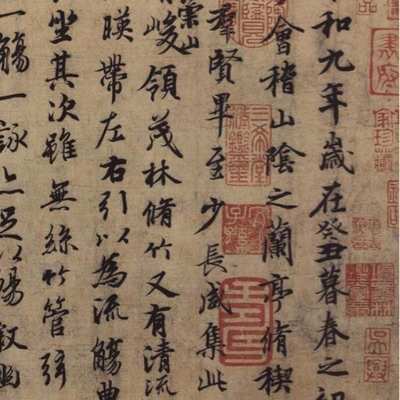 和九年歲在癸丑暮春之初
會稽山陰之蘭亭脩禊
羣賢畢至少長咸集此
崇山
峻領茂林脩竹又有清流
暎帶左右引以為流觴曲
坐其次雖無絲竹管弦
一觴一詠亦足以暢敘幽
三希堂精鑑璽
宜子孫